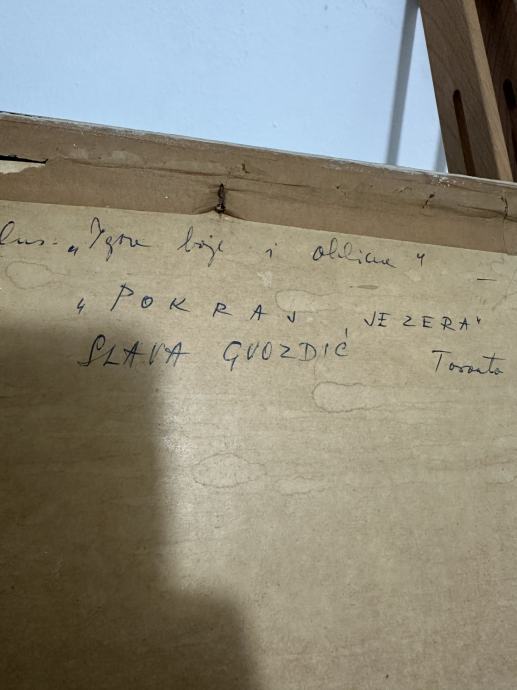 „Igra boje i oblika" –
„POKRAJ JEZERA"
SLAVA GVOZDIĆ Toronto